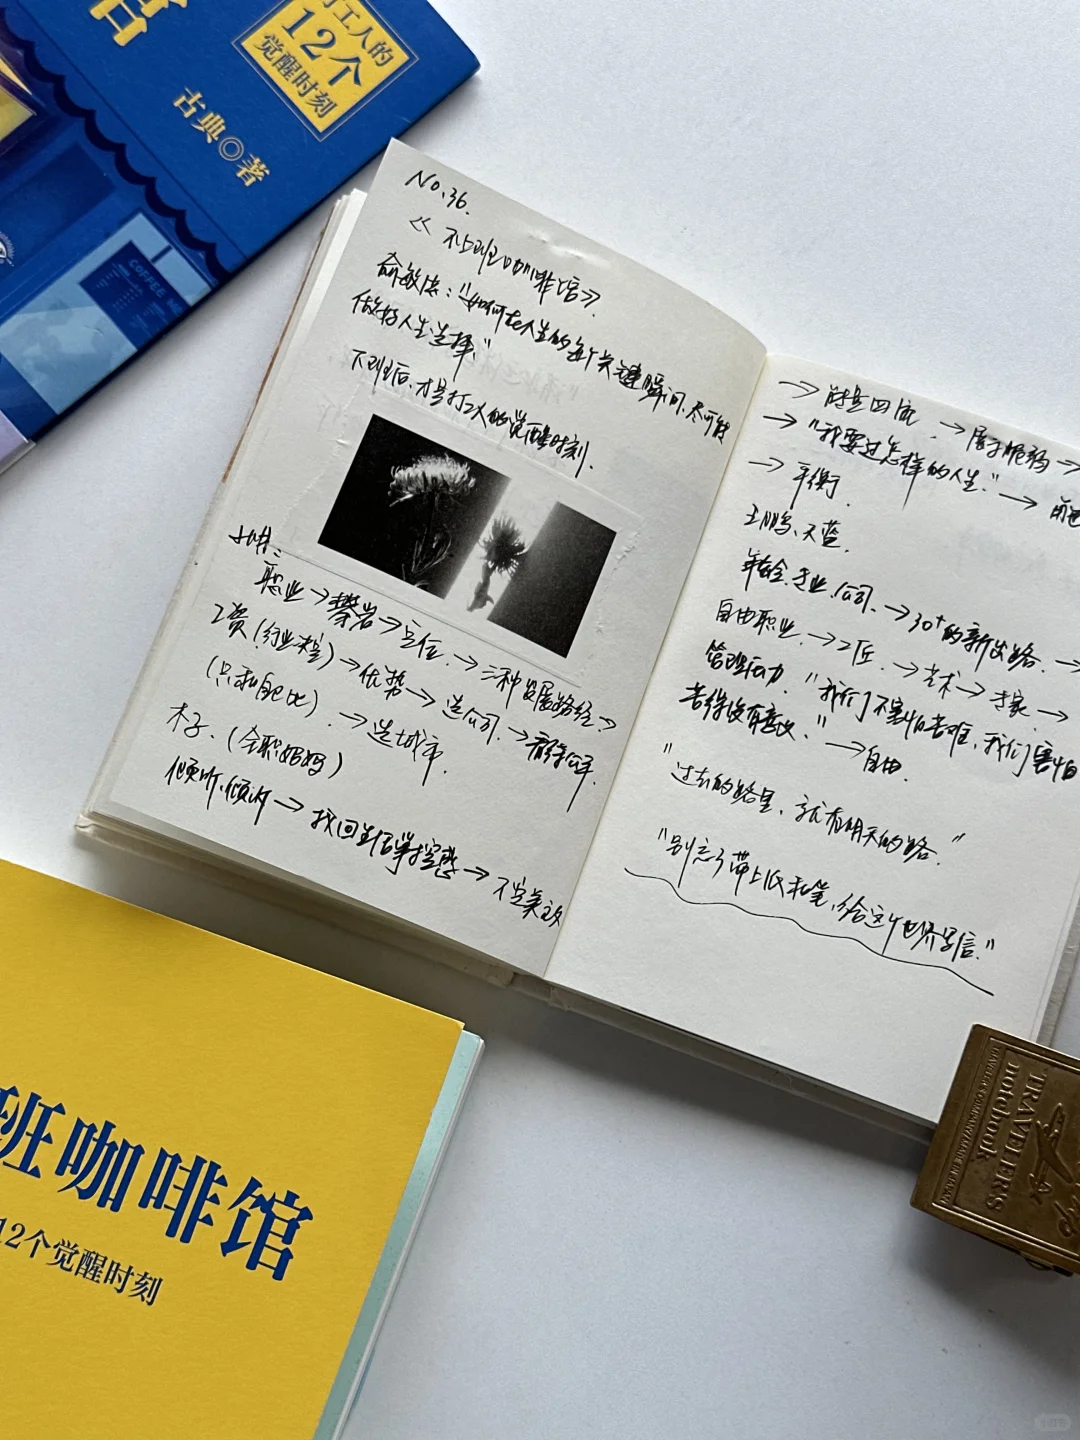 打工人的
12个
觉醒时刻
古典◎著
COFFEE ME
No.36.
《不上班咖啡馆》
俞敏洪："如何在人生的每个关键瞬间,尽可能
做好人生选择."
不上班后,才是打工人的觉醒时刻.
职业→攀岩→定位.→三种发展路径→
工资(行业课堂)→优势→选公司→
(只和自己比).→选城市.
木子.(全职妈妈)
倾听,倾听→找回掌控感→不完美
→
→"我要过怎样的人生."→
→平衡.
王鹏、天蓝.
年龄、专业、公司.→30+的新出路.→
自由职业.→工匠.→艺术→专家→
管理压力."我们不害怕苦难,我们害怕
苦得没有意义."→自由.
"过去的路里,就有明天的路."
"别忘了带上纸和笔,给这个世界写信."
班咖啡馆
12个觉醒时刻
TRAVELER'S
notebook
TRAVELER'S COMPANY MADE IN JAPAN